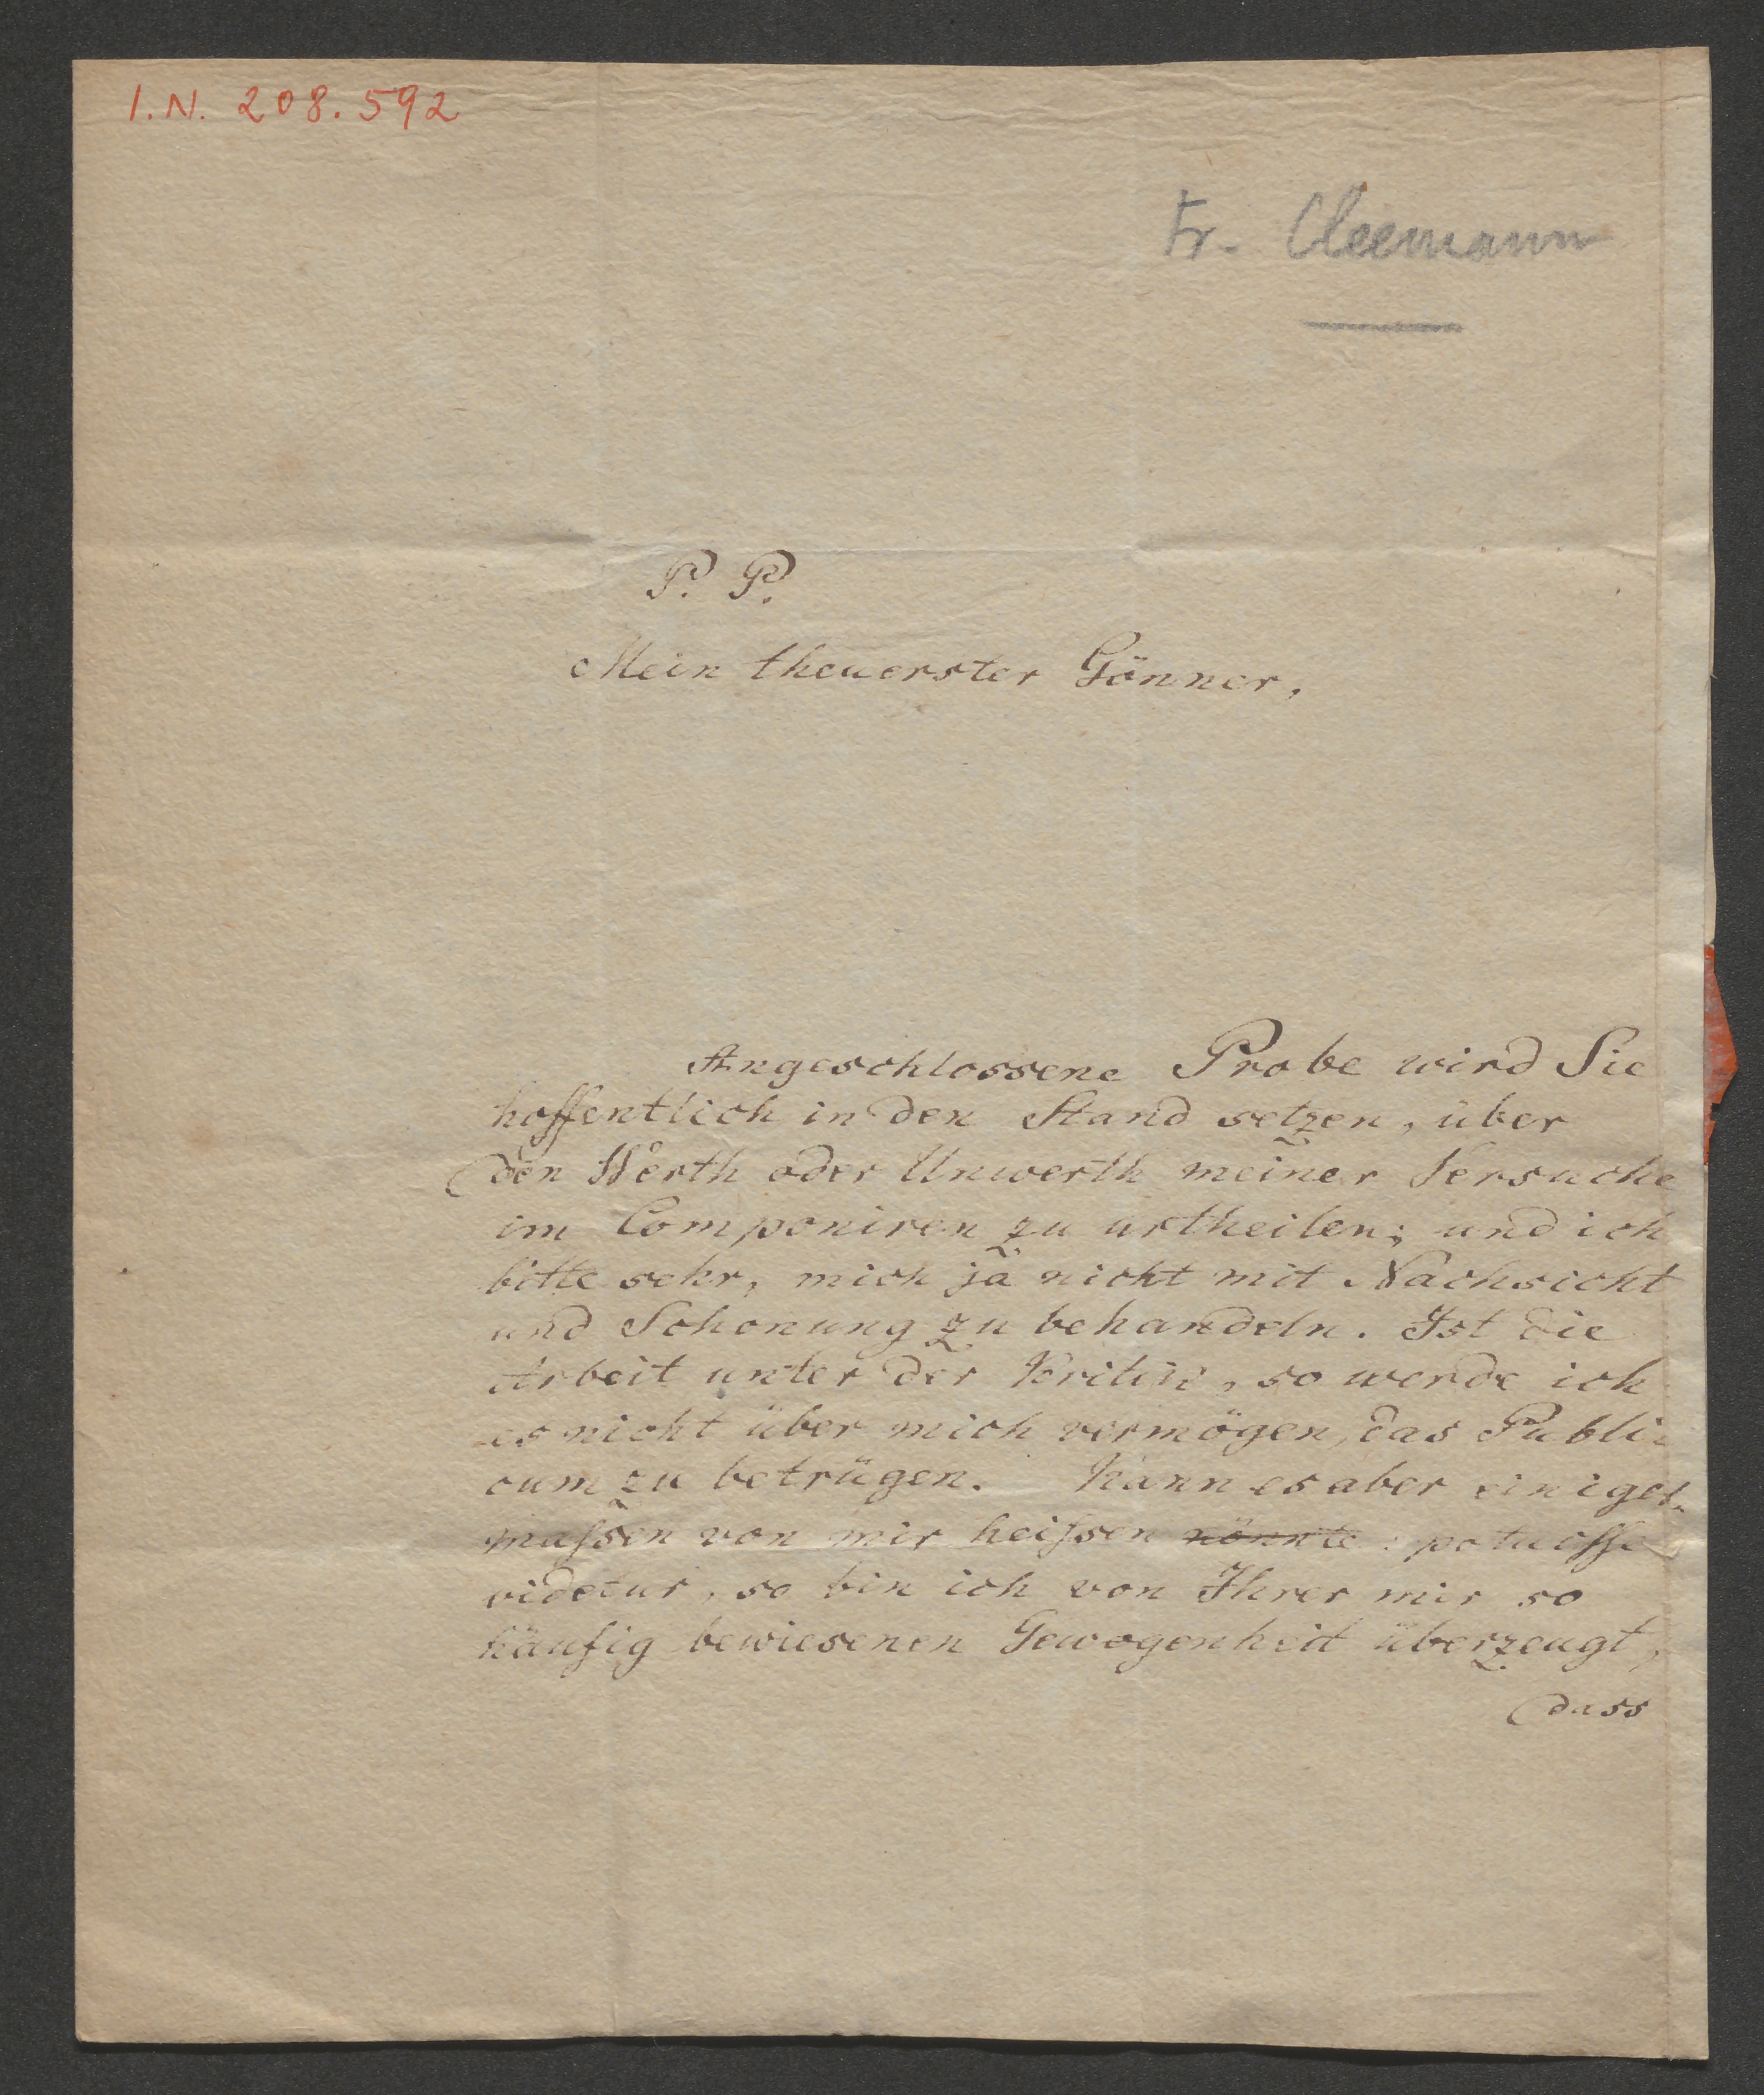 I.N. 208.592
Fr. Cleemann
P. P.
Mein theuerster Gönner,
Angeschlossene Probe wird Sie
hoffentlich in den Stand setzen, über
den Werth oder Unwerth meiner Versuche
im Componiren zu urtheilen; und ich
bitte sehr, mich ja nicht mit Nachsicht
und Schonung zu behandeln. Ist die
Arbeit unter der Kritik, so werde ich
es nicht über mich vermögen, das Publi-
cum zu betrügen. Kann es aber einiger-
maſsen von mir heiſsen könnte: potuiſſe
videtur, so bin ich von Ihrer mir so
häufig bewiesenen Gewogenheit überzeugt,
dass